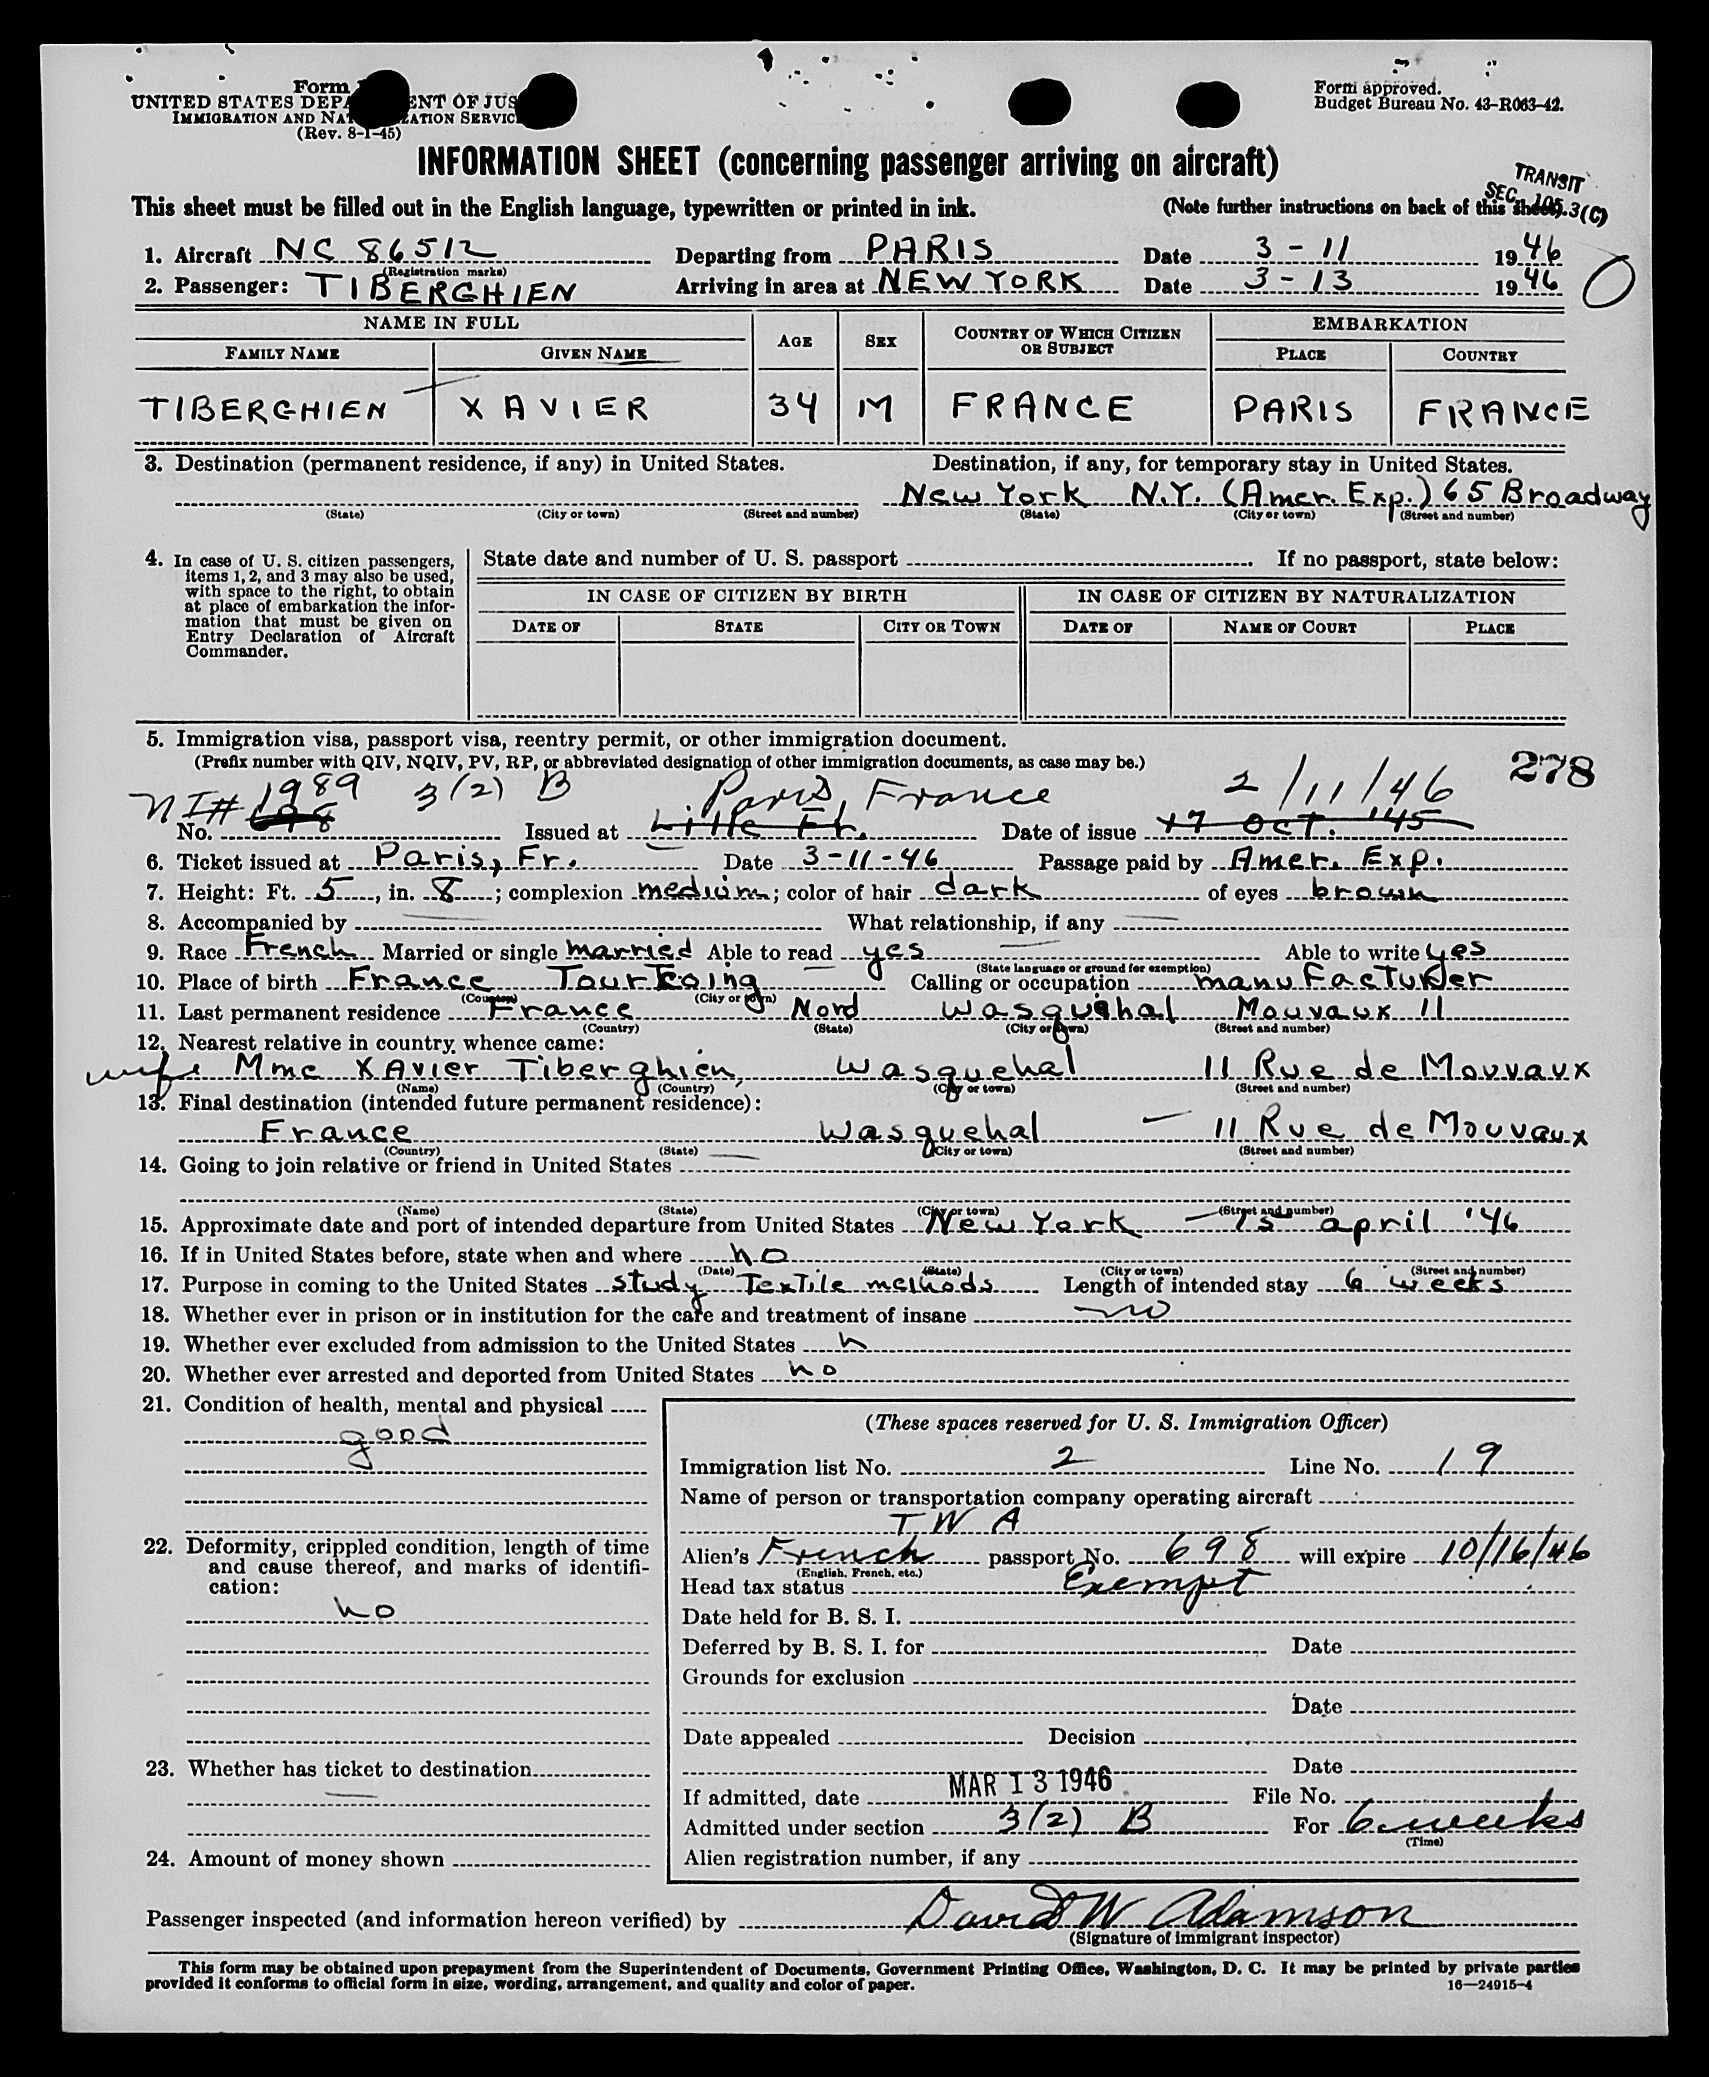 Form
UNITED STATES DEPA ENT OF JUS
IMMIGRATION AND NAT ZATION SERVIC
(Rev. 8-1-45)
Form approved.
Budget Bureau No. 43-R063-42.
INFORMATION SHEET (concerning passenger arriving on aircraft)
TRANSIT
SEC. 105.3(C)
This sheet must be filled out in the English language, typewritten or printed in ink. (Note further instructions on back of this sheet)
1. Aircraft NC 86512 Departing from PARIS Date 3-11 1946
(Registration marks)
2. Passenger: TIBERGHIEN Arriving in area at NEW YORK Date 3-13 1946
0
NAME IN FULL AGE SEX COUNTRY OF WHICH CITIZEN OR SUBJECT EMBARKATION
FAMILY NAME GIVEN NAME PLACE COUNTRY
TIBERGHIEN XAVIER 34 M FRANCE PARIS FRANCE
3. Destination (permanent residence, if any) in United States. Destination, if any, for temporary stay in United States.
New York N.Y. (Amer. Exp.) 65 Broadway
(State) (City or town) (Street and number) (State) (City or town) (Street and number)
4. In case of U. S. citizen passengers,
items 1, 2, and 3 may also be used,
with space to the right, to obtain
at place of embarkation the infor-
mation that must be given on
Entry Declaration of Aircraft
Commander.
State date and number of U. S. passport If no passport, state below:
IN CASE OF CITIZEN BY BIRTH IN CASE OF CITIZEN BY NATURALIZATION
DATE OF STATE CITY OR TOWN DATE OF NAME OF COURT PLACE
5. Immigration visa, passport visa, reentry permit, or other immigration document.
(Prefix number with QIV, NQIV, PV, RP, or abbreviated designation of other immigration documents, as case may be.)
278
NI# 1989 3(2) B Paris, France 2/11/46
No. 698 Issued at Lille Fr. Date of issue 17 OCT. '45
6. Ticket issued at Paris, Fr. Date 3-11-46 Passage paid by Amer. Exp.
7. Height: Ft. 5, in. 8; complexion medium; color of hair dark of eyes brown
8. Accompanied by — What relationship, if any —
9. Race French Married or single married Able to read yes — Able to write yes
(State language or ground for exemption)
10. Place of birth France Tourcoing Calling or occupation manufacturer
(Country) (City or town)
11. Last permanent residence France Nord Wasquehal Mouvaux 11
(Country) (State) (City or town) (Street and number)
12. Nearest relative in country whence came:
wife Mme XAvier Tiberghien, Wasquehal 11 Rue de Mouvaux
(Name) (Country) (City or town) (Street and number)
13. Final destination (intended future permanent residence):
France Wasquehal — 11 Rue de Mouvaux
(Country) (State) (City or town) (Street and number)
14. Going to join relative or friend in United States —
(Name) (State) (City or town) (Street and number)
15. Approximate date and port of intended departure from United States New York — 15 april '46
16. If in United States before, state when and where no
(Date) (State) (City or town) (Street and number)
17. Purpose in coming to the United States study Textile methods Length of intended stay 6 weeks
18. Whether ever in prison or in institution for the care and treatment of insane no
19. Whether ever excluded from admission to the United States n
20. Whether ever arrested and deported from United States no
21. Condition of health, mental and physical
good
22. Deformity, crippled condition, length of time
and cause thereof, and marks of identifi-
cation:
no
23. Whether has ticket to destination
—
24. Amount of money shown
(These spaces reserved for U. S. Immigration Officer)
Immigration list No. 2 Line No. 19
Name of person or transportation company operating aircraft
TWA
Alien's French passport No. 698 will expire 10/16/46
(English, French, etc.)
Head tax status Exempt
Date held for B. S. I.
Deferred by B. S. I. for Date
Grounds for exclusion
Date
Date appealed Decision
Date
If admitted, date MAR 13 1946 File No.
Admitted under section 3(2) B For 6 weeks
(Time)
Alien registration number, if any
Passenger inspected (and information hereon verified) by David W Adamson
(Signature of immigrant inspector)
This form may be obtained upon prepayment from the Superintendent of Documents, Government Printing Office, Washington, D. C. It may be printed by private parties
provided it conforms to official form in size, wording, arrangement, and quality and color of paper. 16—24915-4